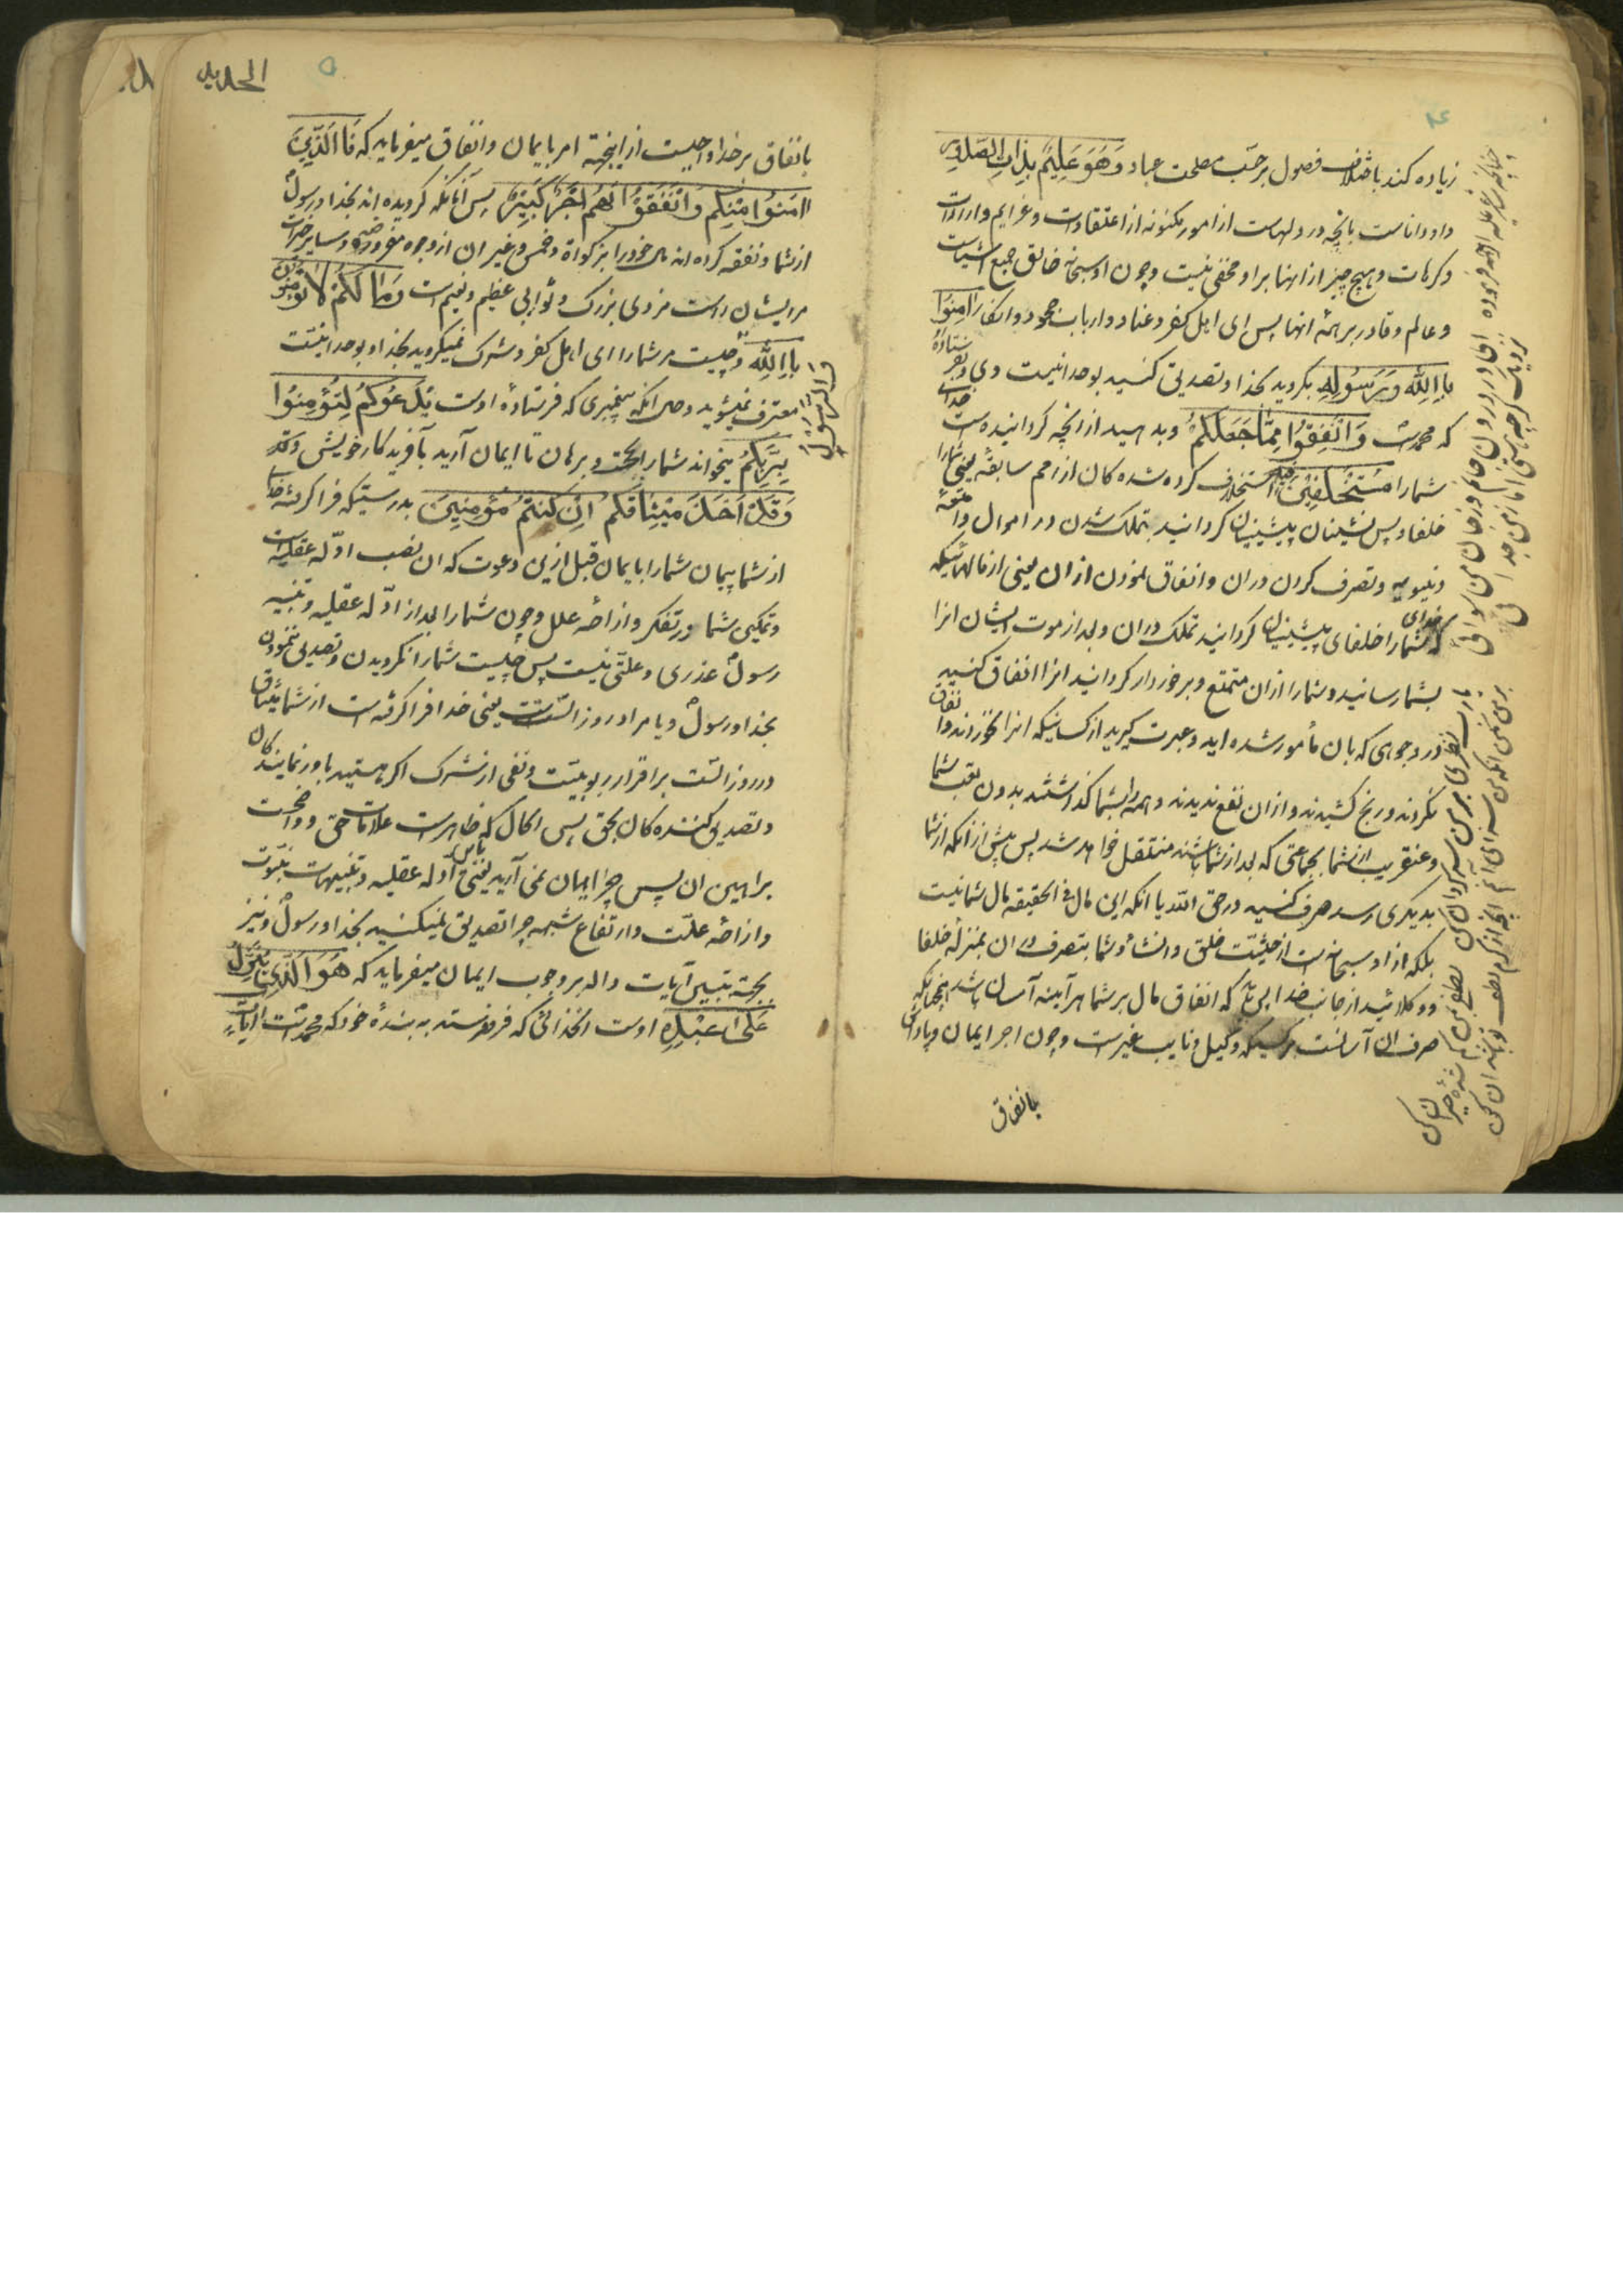 زیاده کند باختلاف فصول بر حسب مصلحت عباد وَهُوَ عَلِیمٌ بِذاتِ الصُّدُورِ
واو داناست بانچه در دلهاست از امور مکنونه از اعتقادات وعزایم وارادات
وکرهات وهیچ چیز از انها بر او مخفی نیست وچون او سبحانه خالق جمیع اشیاست
وعالم وقادر بر همه انها پس ای اهل کفر وعناد وارباب جحود وانکار اٰمِنُوا
بِاللّٰهِ وَرَسُولِهِ بگروید بخدا وتصدیق کنید بوحدانیت وی وبفرستاده
که محمدست وَاَنْفِقُوا مِمّٰا جَعَلَکُمْ وبدهید از انچه گردانیده است خدای
شما را مُسْتَخْلَفِینَ فِیهِ استخلاف کرده شده کان از امم سابقه یعنی شما را
خلفا وپس نشینان پیشینیان گردانید بتملک شدن در اموال وامتعه
دنیویه وتصرف کردن دران وانفاق نمودن ازان یعنی از مالهائیکه
که خدای شما را خلفای پیشینیان گردانید تملک دران وبعد از موت ایشان انرا
بشما رسانید وشما را ازان متمتع وبرخوردار گردانید انرا انفاق کنید
در وجوهی که بان مأمور شده اید وعبرت گیرید از کسانیکه انرا نخوردند وانفاق
نکردند ورنج کشیدند وازان نفع ندیدند وهمه را بشما گذاشتند بدون تعب شما
وعنقریب از شما بجماعتی که بعد از شما باشند منتقل خواهد شد پس پیش از آنکه از شما
بدیگری رسد صرف کنید در حق الله یا انکه این مال فی الحقیقه مال شما نیست
بلکه از او سبحانه است از حیثیت خلق وانشأ وشما بتصرف دران بمنزله خلفا
ووکلائید از جانب خدا پس باید که انفاق مال بر شما هرآینه آسان باشد همچنانکه
صرف ان آسانست بر کسیکه وکیل ونایب غیرست وچون اجر ایمان وپاداش
بانفاق
الحدید
۵
بانفاق بر خدا واجبست از اینجهة امر بایمان وانفاق میفرماید که فَالَّذِینَ
اٰمَنُوا مِنْکُمْ وَاَنْفَقُوا لَهُمْ اَجْرٌ کَبِیرٌ پس آنانکه گرویده اند بخدا ورسول
از شما ونفقه کرده اند مال خود را بزکوة وخمس وغیر ان از وجوه مفروضه وسایر خیرات
مر ایشان راست مزدی بزرگ وثوابی عظیم ونعیم است وَمٰا لَکُمْ لاٰ تُؤْمِنُونَ
بِاللّٰهِ وچیست مر شما را ای اهل کفر وشرک نمیگروید بخدا وبوحدانیت
وَالرَّسُولُ
معترف نمیشوید وحال انکه پیغمبری که فرستادهٔ اوست یَدْعُوکُمْ لِتُؤْمِنُوا
بِرَبِّکُمْ میخواند شما را بحجت وبرهان تا ایمان آرید بآفریدکار خویش
وَقَدْ اَخَذَ مِیثٰاقَکُمْ اِنْ کُنْتُمْ مُؤْمِنِینَ بدرستیکه فرا گرفته خدا
از شما پیمان شما را بایمان قبل ازین دعوت که ان نصب ادله عقلیه است
وتمکین شما در تفکر وازاحه علل وچون شما را بعد از ادله عقلیه وتنبیه
رسول عذری وعلتی نیست پس چیست شما را نگرویدن وتصدیق ننمودن
بخدا ورسول ویا مراد روز الست است یعنی خدا فرا گرفته است از شما میثاق
در روز الست بر اقرار ربوبیت ونفی از شرک اگر هستید باور نماینده کان
وتصدیق کننده کان بحق پس الحال که ظاهرست علامات حق وواضحست
براهین ان پس چرا ایمان نمی آرید یعنی بادله عقلیه وتنبیهات نبوت
وازاحه علت وارتفاع شبهه چرا تصدیق نمیکنید بخدا ورسول ونیز
بجهة تبیین آیات داله بر وجوب ایمان میفرماید که هُوَ الَّذِی یُنَزِّلُ
عَلیٰ عَبْدِهِ اوست انخدائی که فرو فرستد به بندهٔ خود که محمدست اٰیٰاتٍ